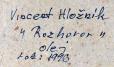 Vincent Hložník
" Rozhovor "
olej
rok: 1990